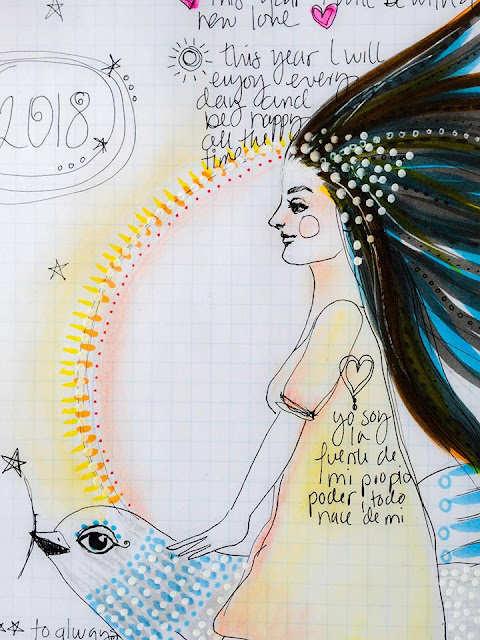 this year will be
new love
- this year I will
enjoy every
day and
be happy
all the
time
2018
yo soy
la
fuente de
mi propio
poder ¡todo
nace de mi
to always